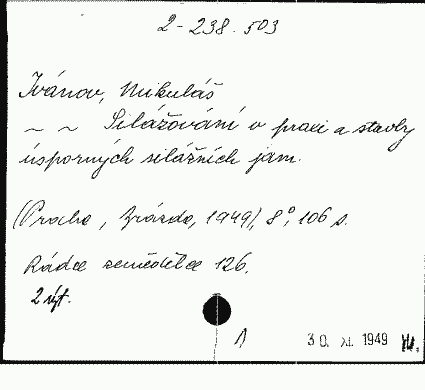 2-238.503
Ivánov, Mikuláš
~ ~ Silážování v praxi a stavby
úsporných silážních jam.
(Praha, Brázda, 1949), 8°, 106 s.
Rádce zemědělce 126.
2 výt.
1 30. XI. 1949